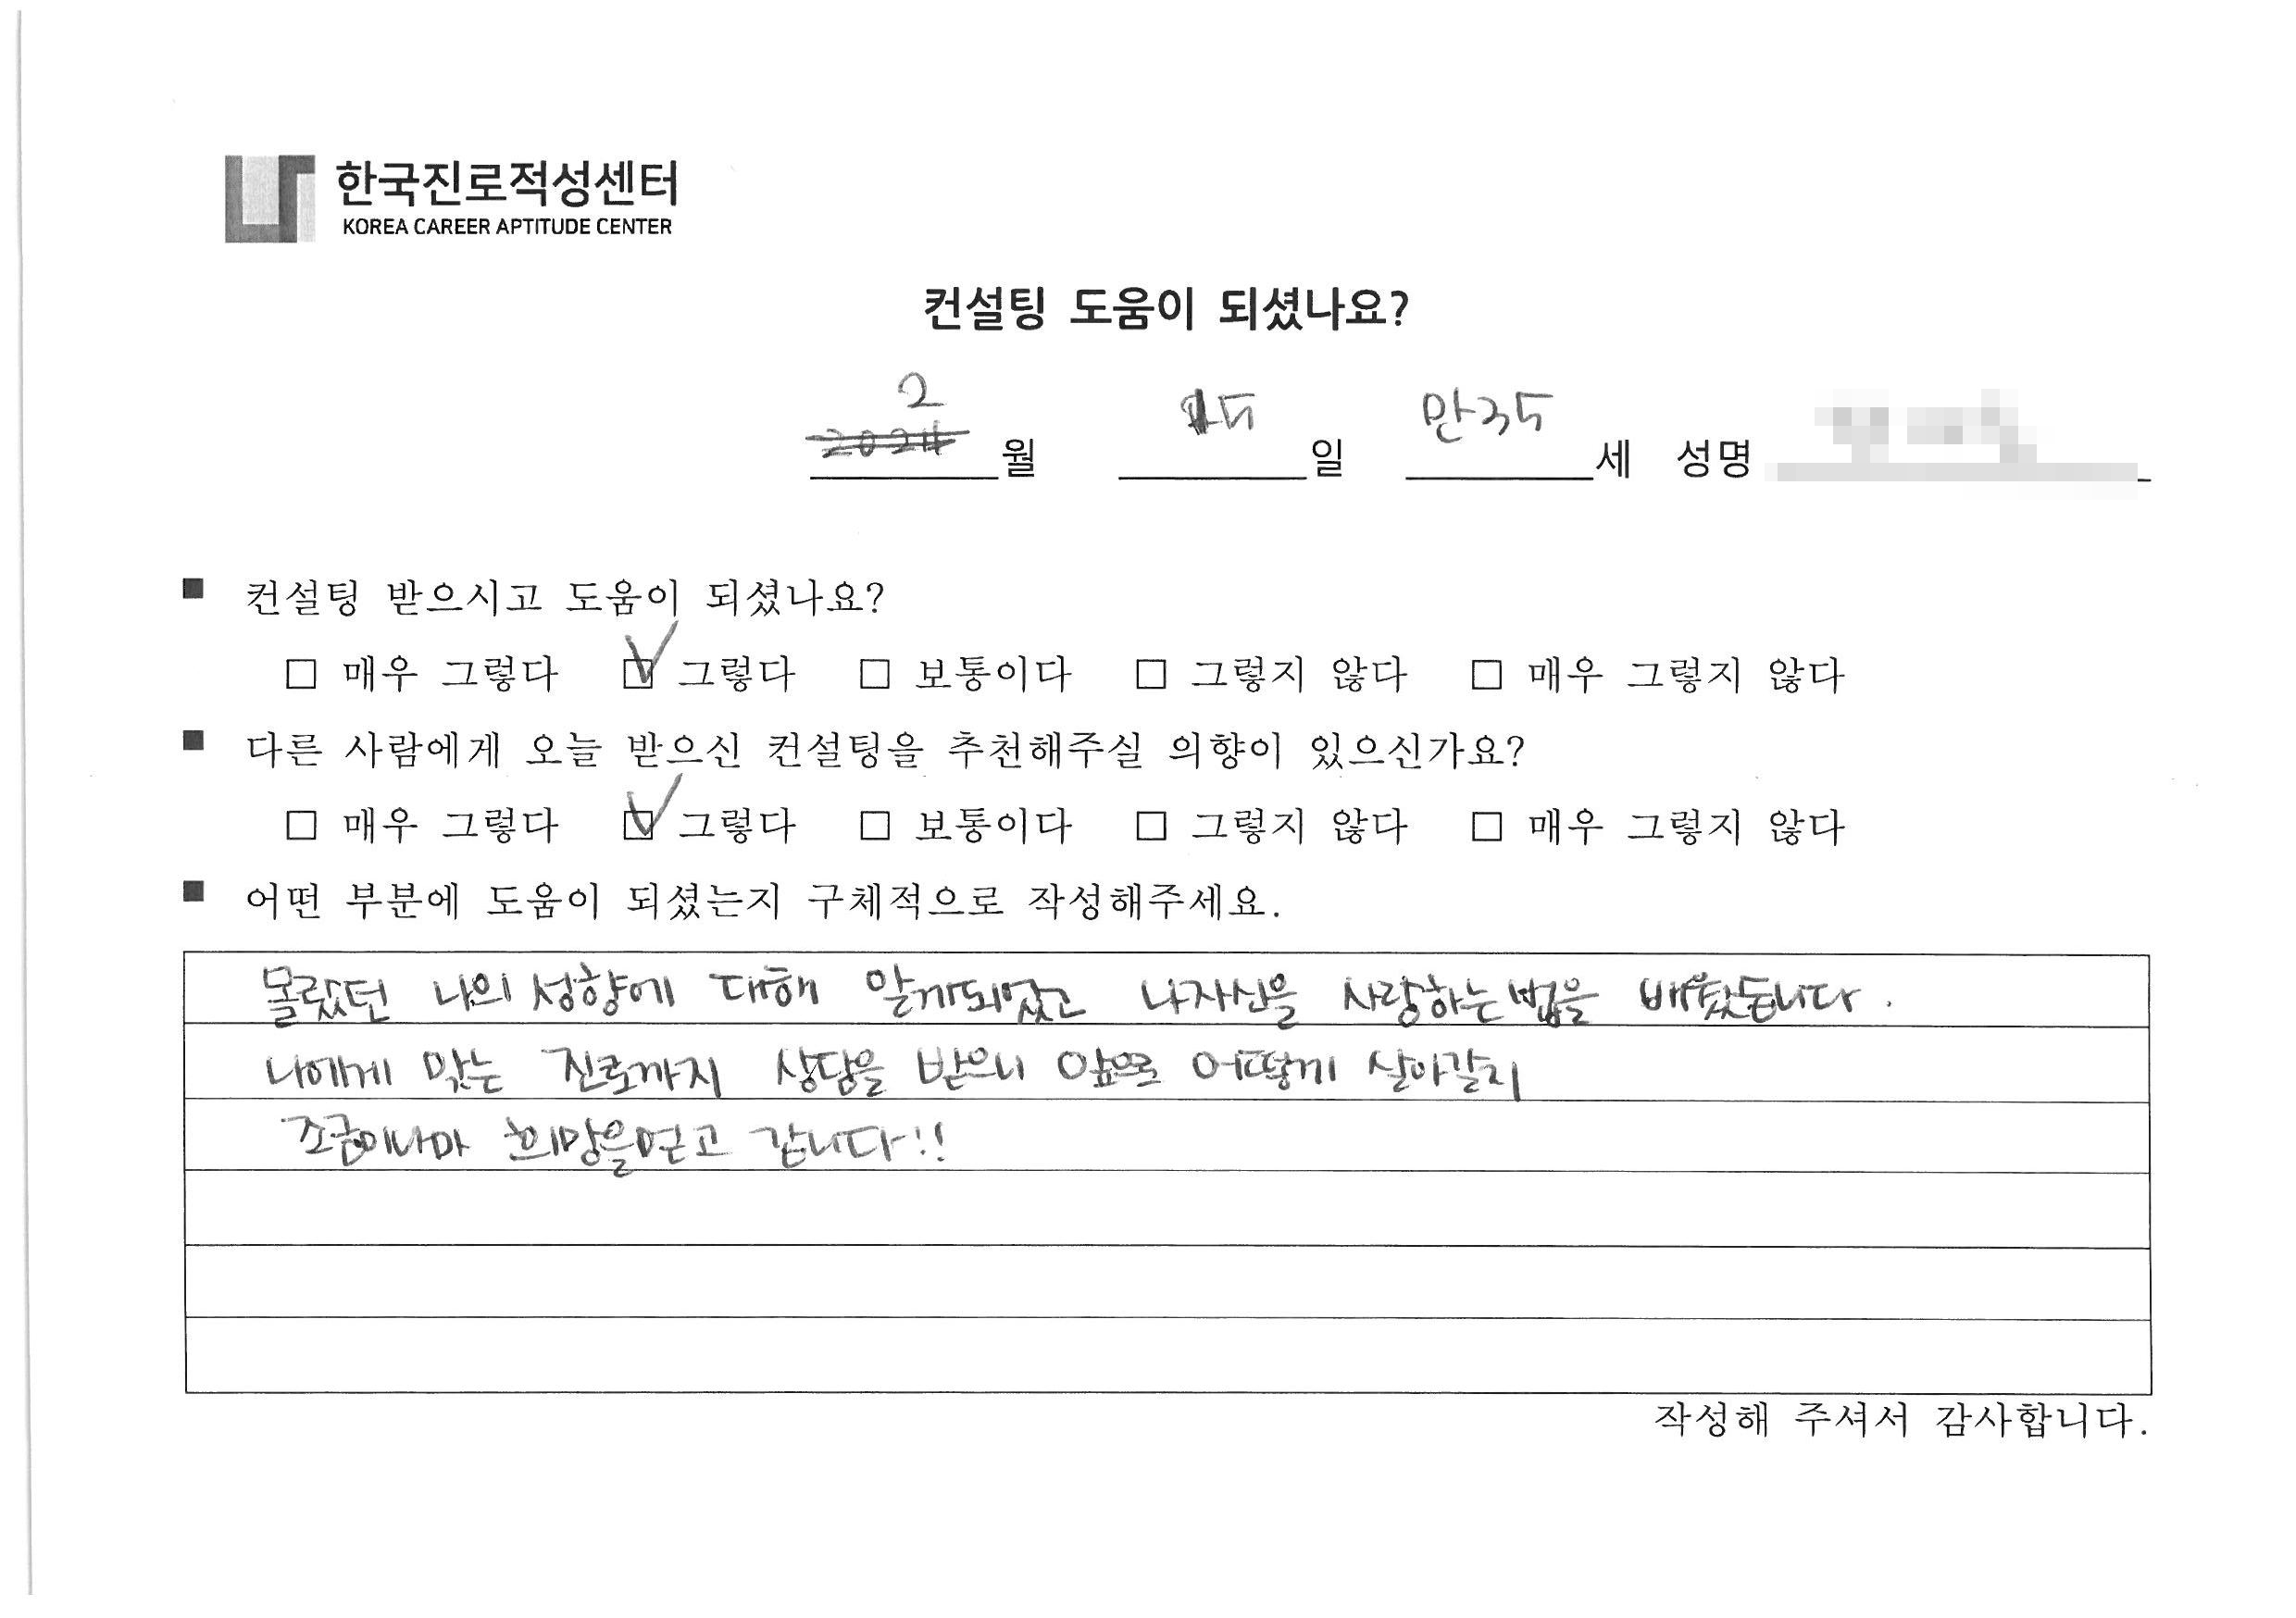 한국진로적성센터
KOREA CAREER APTITUDE CENTER
컨설팅 도움이 되셨나요?
2 월 15 일 만35 세 성명
■ 컨설팅 받으시고 도움이 되셨나요?
□ 매우 그렇다 ☑ 그렇다 □ 보통이다 □ 그렇지 않다 □ 매우 그렇지 않다
■ 다른 사람에게 오늘 받으신 컨설팅을 추천해주실 의향이 있으신가요?
□ 매우 그렇다 ☑ 그렇다 □ 보통이다 □ 그렇지 않다 □ 매우 그렇지 않다
■ 어떤 부분에 도움이 되셨는지 구체적으로 작성해주세요.
몰랐던 나의 성향에 대해 알게되었고 나자신을 사랑하는법을 배웠듭니다.
나에게 맞는 진로까지 상담을 받으니 앞으로 어떻게 살아갈지
조금이나마 희망을얻고 갑니다!!
작성해 주셔서 감사합니다.